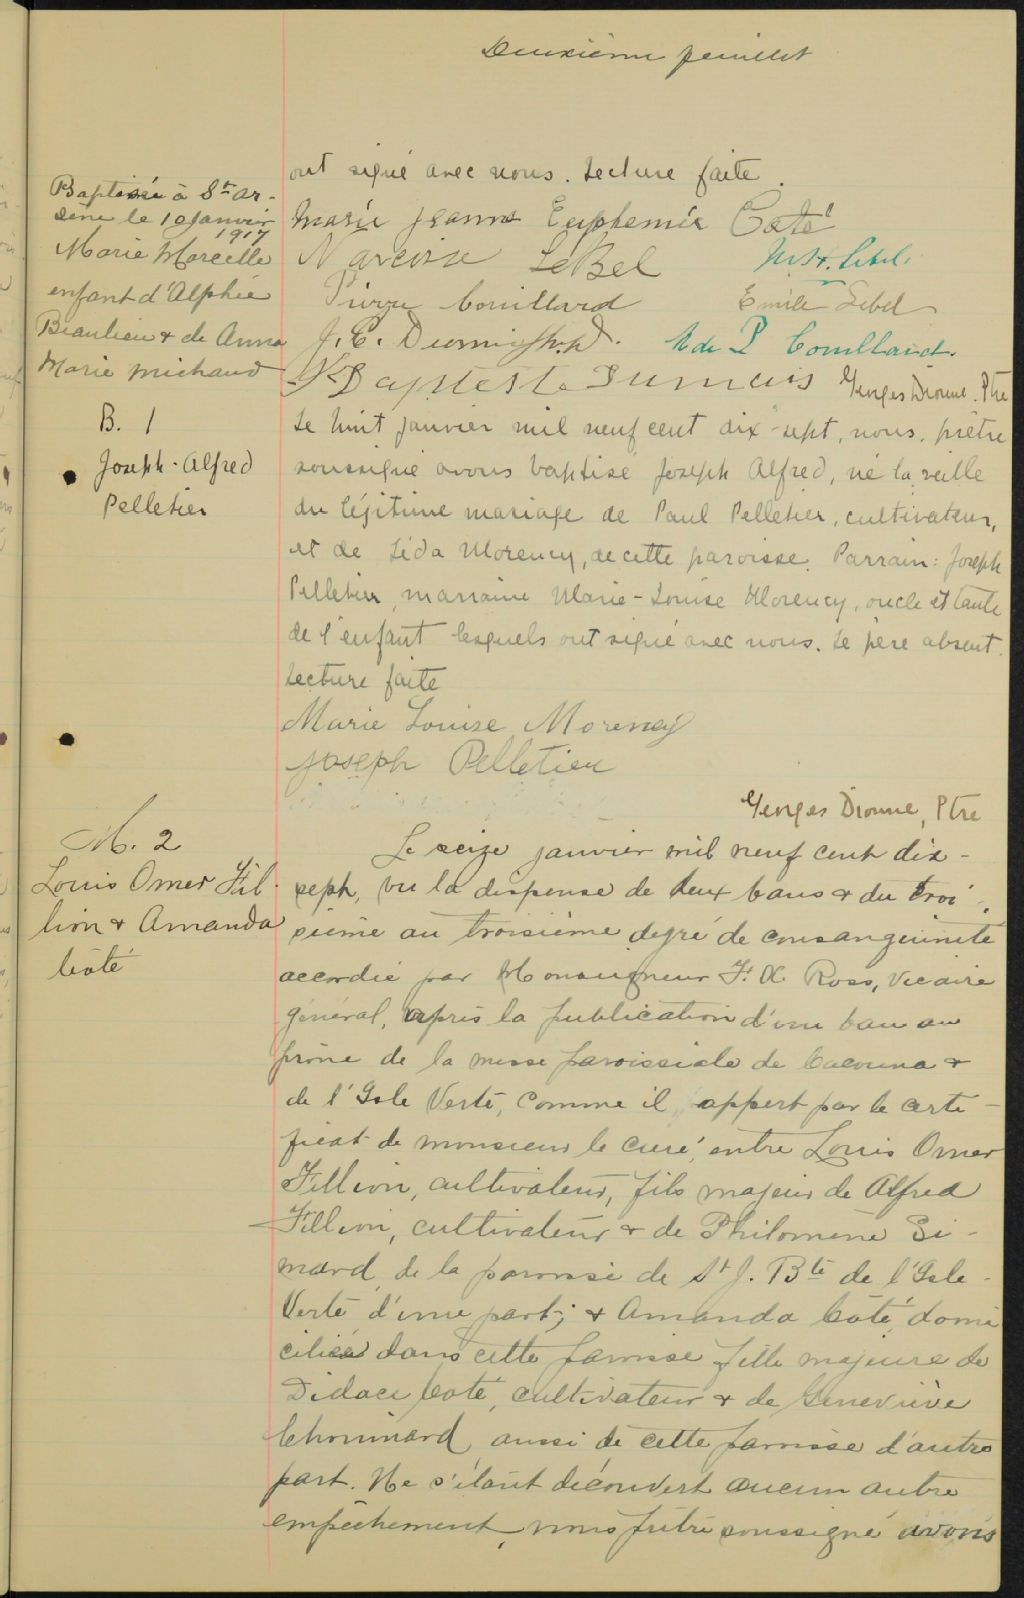 Deuxième feuillet
ont signé avec nous. Lecture faite.
Marie Jeanne Euphémie Coté
Narcisse LeBel
Emile Lebel
Pierre Couillard
P Couillard.
J Baptiste Dumais Georges Dionne. Ptre
Baptisée à St Ar-
sène le 10 Janvier
1917
Marie Marcelle
enfant d'Alphée
Beaulieu & de Anna
Marie Michaud
B. 1
Joseph-Alfred
Pelletier
Le huit janvier mil neuf cent dix-sept, nous, prêtre
soussigné avons baptisé Joseph Alfred, né la veille
du légitime mariage de Paul Pelletier, cultivateur,
et de Léda Morency, de cette paroisse. Parrain: Joseph
Pelletier, marraine Marie-Louise Morency, oncle et tante
de l'enfant lesquels ont signé avec nous. Le père absent.
Lecture faite
Marie Louise Morency
Joseph Pelletier
Georges Dionne, Ptre
M. 2
Louis Omer Fil-
lion & Amanda
Coté
Le seize janvier mil neuf cent dix-
sept, vu la dispense de deux bans & du troi-
sième au troisième degré de consanguinité
accordée par Monseigneur F. X. Ross, Vicaire
général, après la publication d'un ban au
prône de la messe paroissiale de Cacouna &
de l'Isle Verte, comme il appert par le certi-
ficat de monsieur le curé, entre Louis Omer
Fillion, cultivateur, fils majeur de Alfred
Fillion, cultivateur & de Philomène Si-
mard de la paroisse de St J. Bte de l'Isle-
Verte d'une part; & Amanda Coté, domi
ciliée dans cette paroisse fille majeure de
Didace Coté, cultivateur & de Geneviève
Chouinard aussi de cette paroisse d'autre
part. Ne s'étant découvert aucun autre
empêchement, nous prêtre soussigné avons